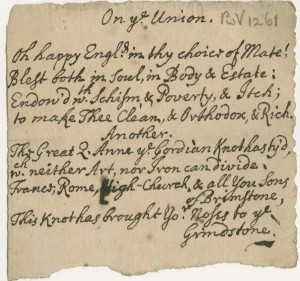 On yᵉ Union. PwV 1261
Oh happy Englᵈ in thy choice of Mate!
Blest both in Soul, in Body & Estate:
Endow'd wᵗʰ Schism & Poverty, & Itch;
to make Thee Clean, & Orthodox, & Rich.
Another.
The Great Q. Anne yᵉ Gordian Knot has ty'd,
wᶜʰ neither Art, nor Iron can divide.
France, Rome, High-Church, & all You Sons
of Brimstone,
This Knot has brought Yoʳ Noses to yᵉ
Grindstone.